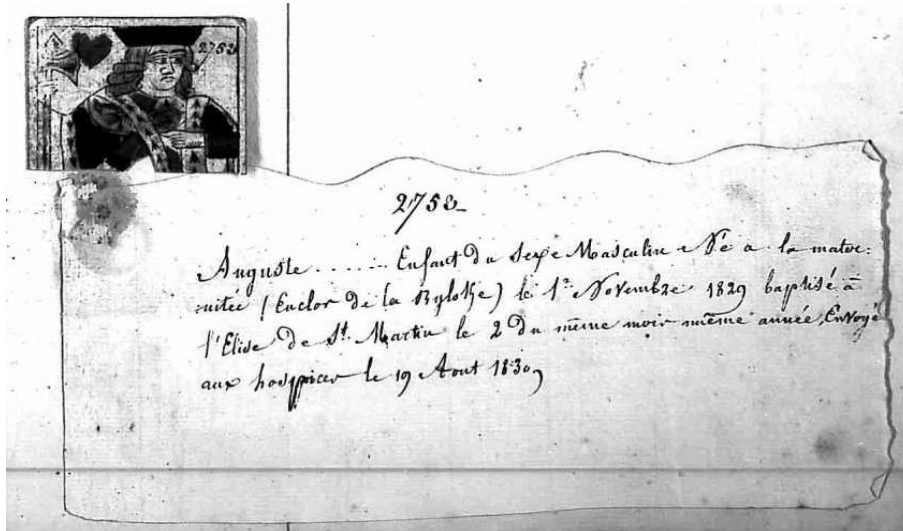 2753
2753
Auguste ....... Enfant du Sexe Masculin Né a la mater:
nitée (Enclos de la Byloke) le 1er Novembre 1829 baptisé a
l'Elise de St. Martin le 2 du même mois même année, Envoyé
aux hospices le 19 Aout 1830,